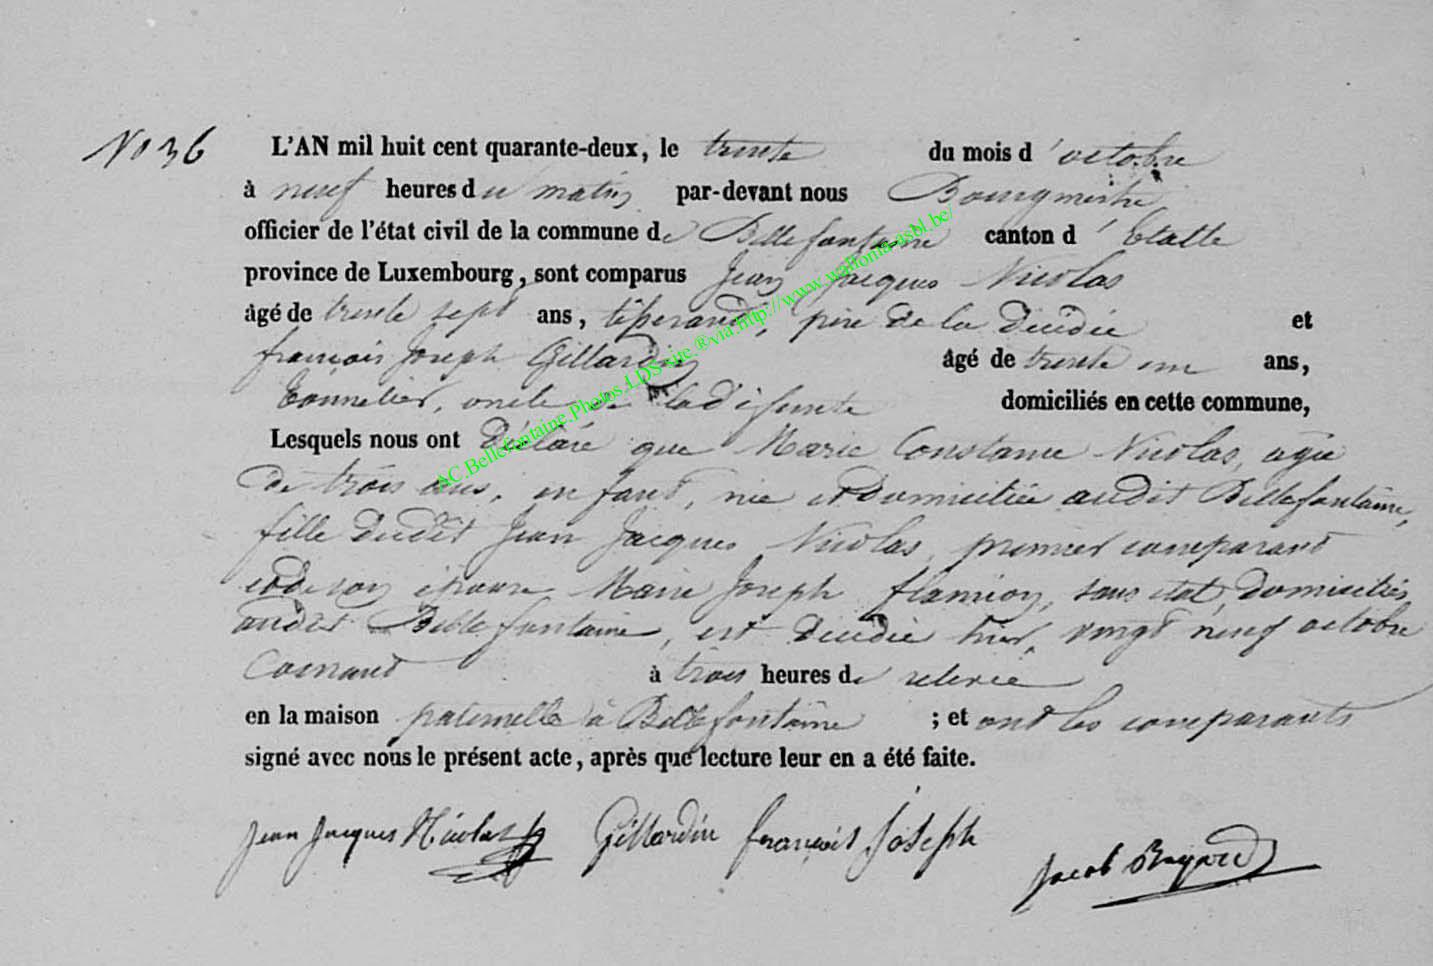 No 36
L'AN mil huit cent quarante-deux, le trente du mois d'octobre
à neuf heures du matin par-devant nous Bourgmestre
officier de l'état civil de la commune de Bellefontaine canton d'Etalle
province de Luxembourg, sont comparus Jean Jacques Nicolas
âgé de trente sept ans, tisserand, père de la décédée et
françois Joseph Gillardin âgé de trente un ans,
tonnelier, oncle de la défunte domiciliés en cette commune,
Lesquels nous ont déclaré que Marie Constance Nicolas, agée
de trois ans, enfant, née et domiciliée audit Bellefontaine,
fille dudit Jean Jacques Nicolas, premier comparant
et de son épouse Marie Joseph flamion, sans état, domiciliés
audit Bellefontaine, est décédée hier, vingt neuf octobre
courant à trois heures de relevée
en la maison paternelle à Bellefontaine ; et ont les comparants
signé avec nous le présent acte, après que lecture leur en a été faite.
Jean Jacques Nicolas Gillardin françois Joseph
Jacob
AC.Bellefontaine.Photos.LDS-site.®via.http://www.wallonia-asbl.be/